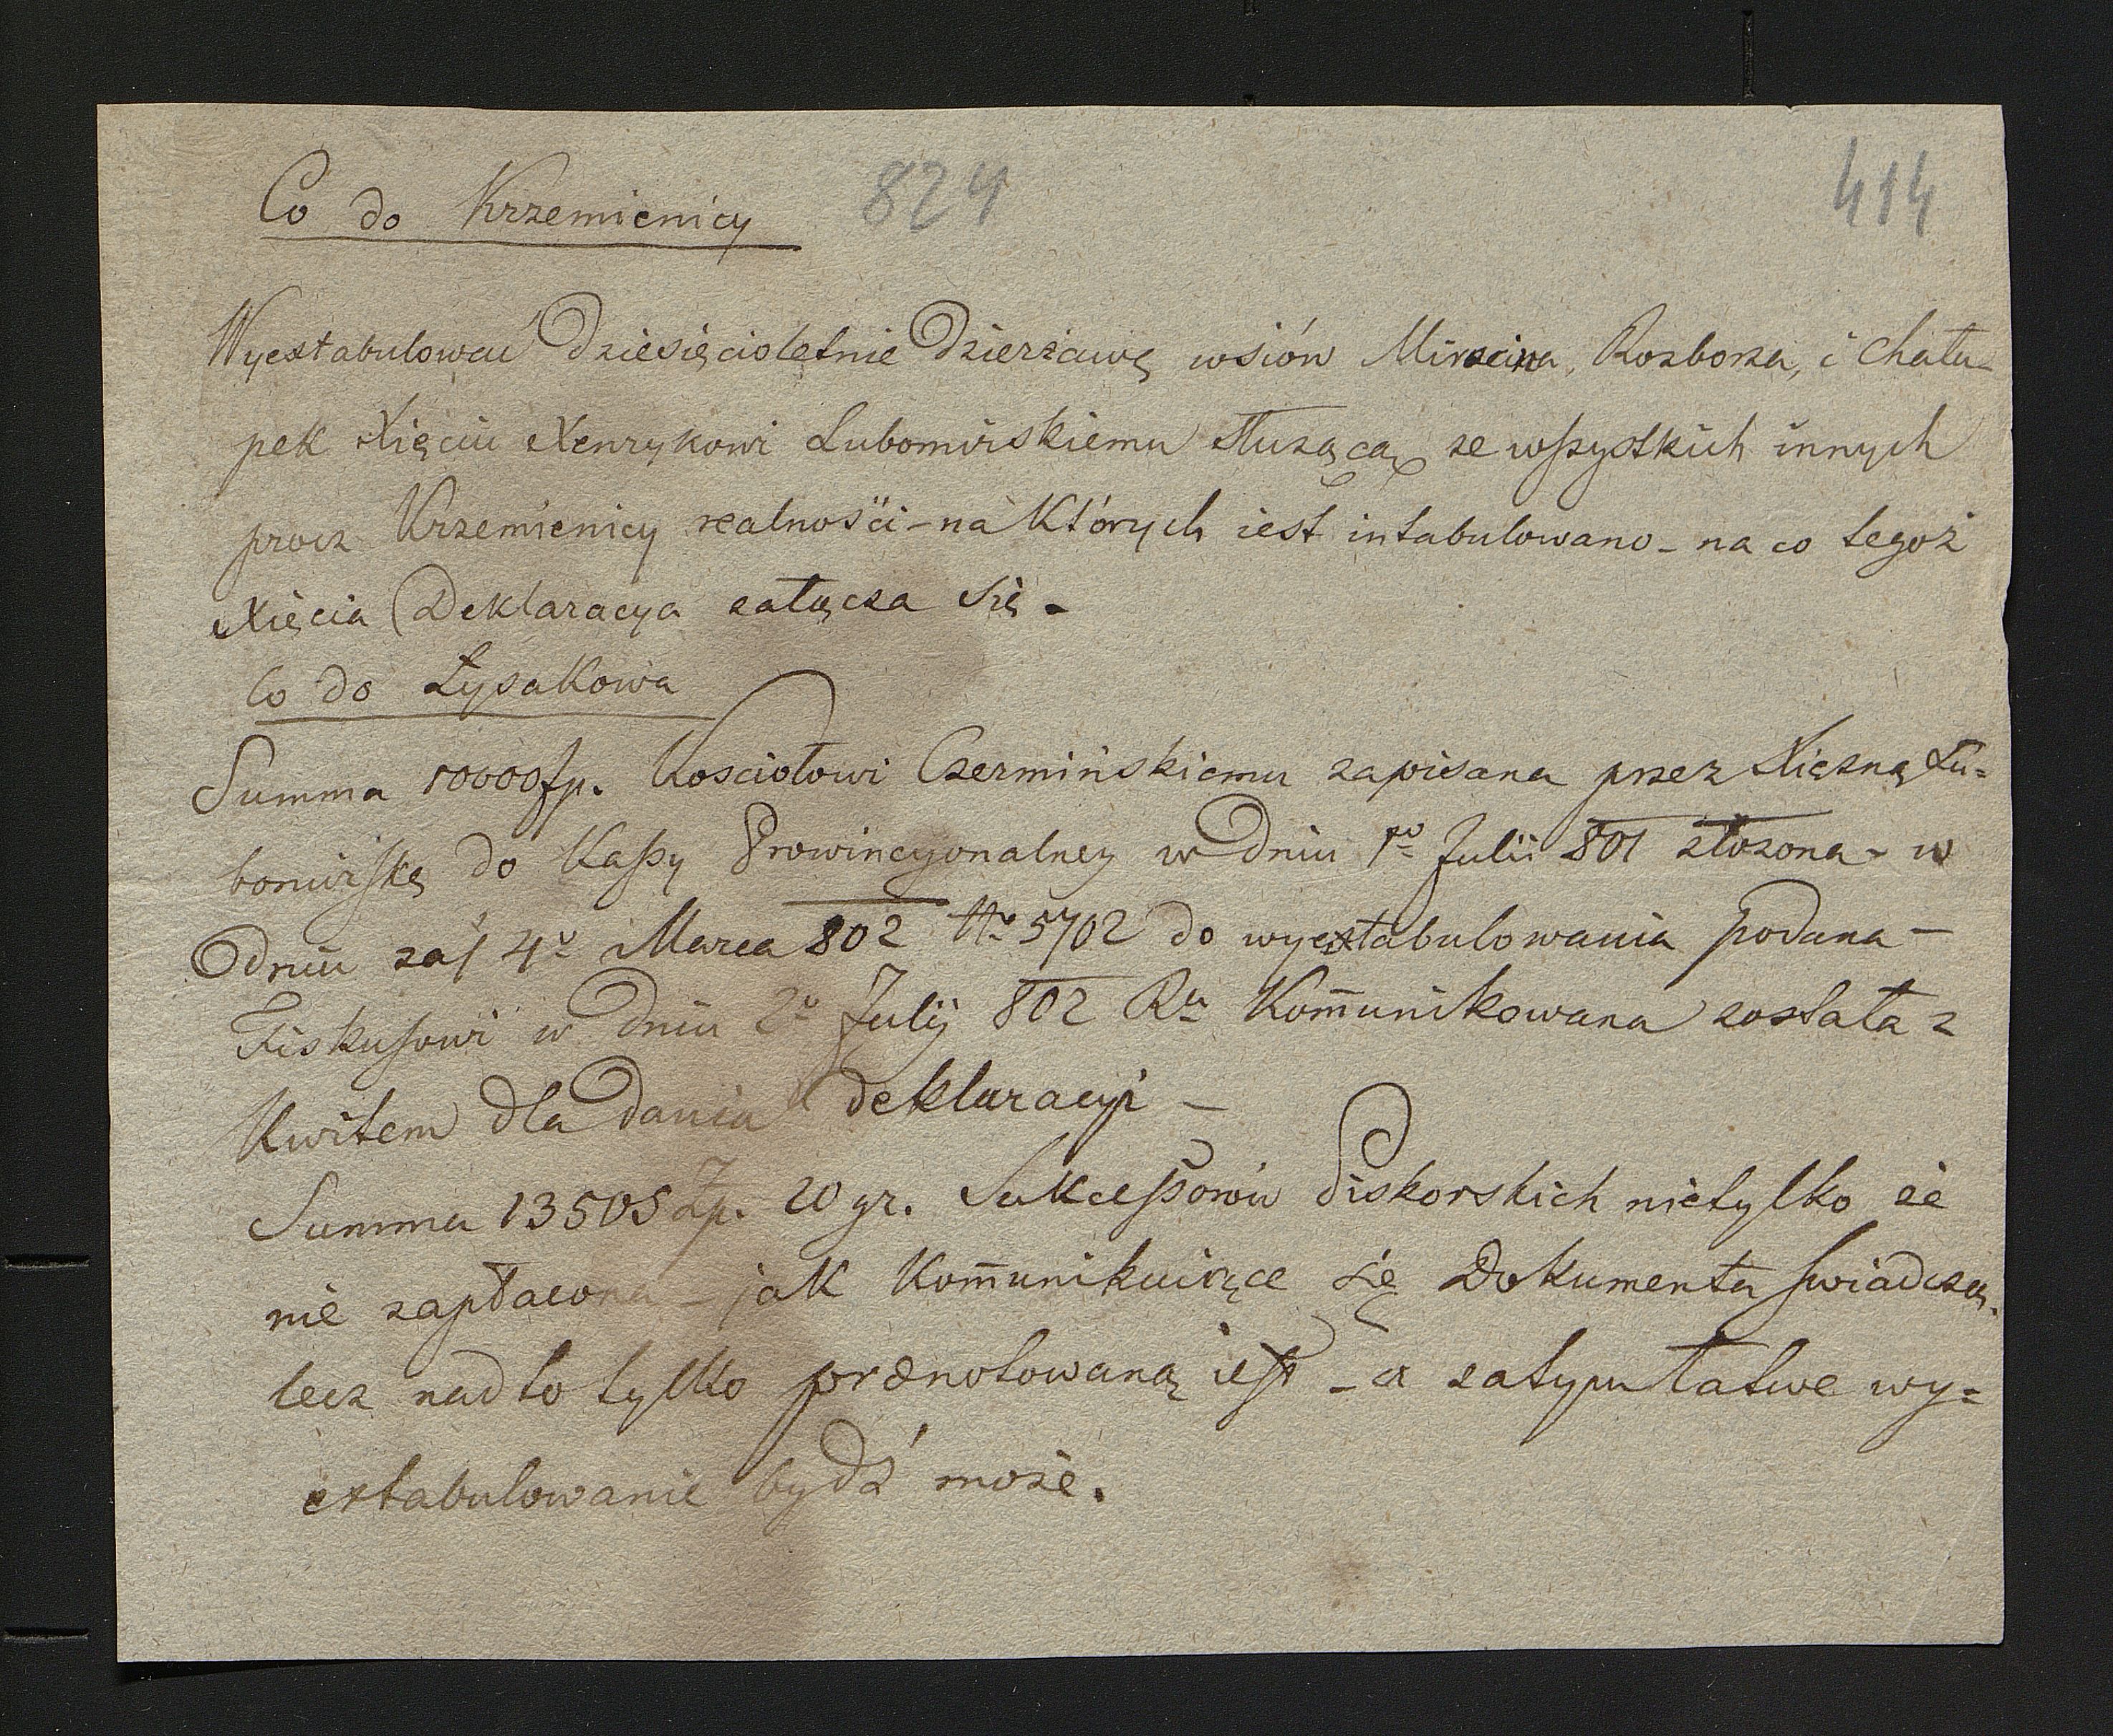 Co do Krzemienicy 824 414
Wyextabulować Dziesięcioletnie Dzierżawę wsiów Mirocina, Rozborza, i Chału-
pek Xięciu Henrykowi Lubomirskiemu służącą ze wszystkich innych
procz Krzemienicy realności - na których iest intabulowano - na co tegoż
Xięcia Deklaracya załącza się.
Co do Łysakowa
Summa 10000 zp. Kosciołowi Czermińskiemu zapisana przez Xiężnę Lu=
bomirską do Kassy Prowincyonalney w dniu 1o Julii 801 złożona - w
dniu zaś 4o Marca 802 No 5702 do wyextabulowania podana -
Fiskusowi w dniu 2o Julij 802 Ru Kom̄unikowana została z
Kwitem dla dania deklaracyi -
Summa 13505 Zp. 20 gr. Sukcessorów Piskorskich nietylko że
nie zapłacona - jak Kom̄unikuiące się Dokumenta swiadczą.
lecz nadto tylko prænotowaną iest - a zatym łatwe wy=
extabulowanie bydź może.